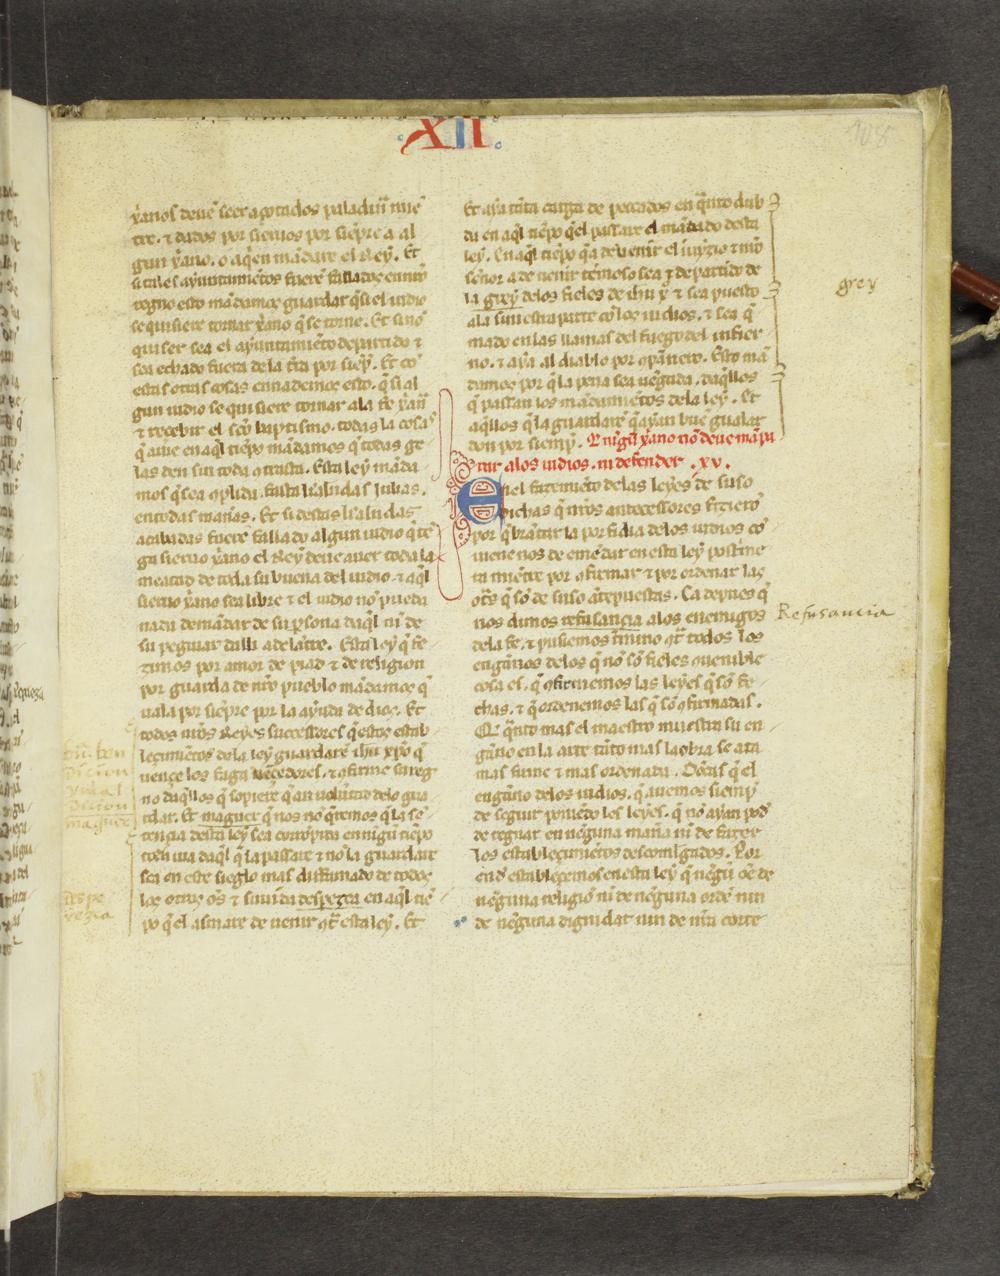 XII.
x̄anos deuẽ seer açotados paladinã mie
tre. ⁊ dados por sieruos por siẽpre a al
gun x̄ano. o aq̃en mãdare el Rey. Et
si tales ayuntamiẽtos fuerẽ fallados en nr̃o
regno esto mãdamos guardar q̃ si el iudio
se quisiere tornar x̄ano q̃ se torne. Et si nõ
quiser sea el ayuntamiẽto departido ⁊
sea echado fuera de la tr̃ra por siẽp̃. Et cõ
estas otras cosas ennademos esto. q̃ si al
gun iudio se quisiere tornar ala fe x̄ana
⁊ recebir el sc̃o baptismo. todas la cosas
q̃ auie en aq̃l tiẽpo mãdamos q̃ todas ge
las den sin toda 9trasta. Esta ley mãda
mos q̃ sea 9plida. fasta l̃as kalẽdas Julias.
en todas mañas. Et si destas kalẽdas
acabadas fuere fallado algun iudio q̃ tẽ
ga sieruo x̄ano el Rey deue auer toda la
meatad de toda su buena del iudio. ⁊ aq̃l
sieruo x̄ano sea libre ⁊ el iudio nõ pueda
nada demãdar de su p̱sona daq̃l ni de
su peguiar dalli adelãtre. Esta ley q̃ fe
ziemos por amor de piad ⁊ de religion
por guarda de nr̃o pueblo mãdamos q̃
uala por siẽpre por la ayuda de dios. Et
todos nr̃os Reyes successores q̃ estos estab
leçimiẽtos dela ley guardarẽ ih̃u xp̃o q̃
uençe los faga uẽcedores. ⁊ 9firme su reg
no daq̃llos q̃ sopiere q̃ an voluntad delo gua
rdar. Et maguer q̃ nos nõ q̃remos q̃ la sẽ
tencia desta ley sea corrõpida en nigũ tiẽpo
toda uia daq̃l q̃ la passare ⁊ nõ la guardare
sea en este sieglo mas diffamado de todos
los otros os̃ ⁊ su uida despeza en aq̃l tiẽ
po q̃ el asmare de uenir 9tra esta ley. Et
Et aya tãta carga de peccados en q̃nto dub
da en aq̃l tiẽpo q̃ el passare el mãdado desta
ley. En aq̃l tiẽpo q̃ a de uenir el iuyzio ⁊ nr̃o
señor a de uenir temoroso sea departido de
la grey delos fieles de ih̃u x̄ ⁊ sea puesto
ala siniestra parte cõ los iudios. ⁊ sea q̃
mado en las llamas del fuego del infier
no. ⁊ aya al diablo por 9pãnero. Esto mã
damos por q̃ la pena sea uẽgada. daq̃llos
q̃ passan los mãdamiẽtos dela ley. Et
aq̃llos q̃ la guardarẽ q̃ ayan buẽ gualar
don por siẽmp̃. Q̃ nigũ x̄ano nõ deue mãpa
rar alos iudios. ni defender .xv.
Enel fazemiẽto delas leyes de suso
dichas q̃ nr̃os antecessores fizierõ
por q̃brãtar la porfidia delos iudios cõ
uiene nos de emẽdar en esta ley postrime
ra miẽtre por 9firmar ⁊ por ordenar las
otras q̃ sõ de suso ãtepuestas. Ca depues q̃
nos dimos refusancia alos enemigos
dela fe. ⁊ pusiemos t̃mino 9tra todos los
engaños de los q̃ nõ sõ fieles 9uenible
cosa es. q̃ 9firmemos las leyes q̃ sõ fe
chas. ⁊ q̃ ordenemos las q̃ sõ 9firmadas.
Ca q̃nto mas el maestro muestra su en
gãno en la arte tãto mas la obra se ata
mas firme ⁊ mas ordenada. Onde a q̃ el
engaño delos iudios. q̃ auemos siẽmp̃
de seguir poniẽdo les leyes. q̃ nõ ayan pod̃
de regnar en nẽguna mañã ni de fazer
los establesçimiẽtos descomulgados. Por
end̃ establecemos en esta ley q̃ nẽgũ ome de
nẽguna religiõ ni de nẽguna ordẽ nin
de nẽguna dignidat nin de nr̃a corte
grey
Refusancia
maguer
despe